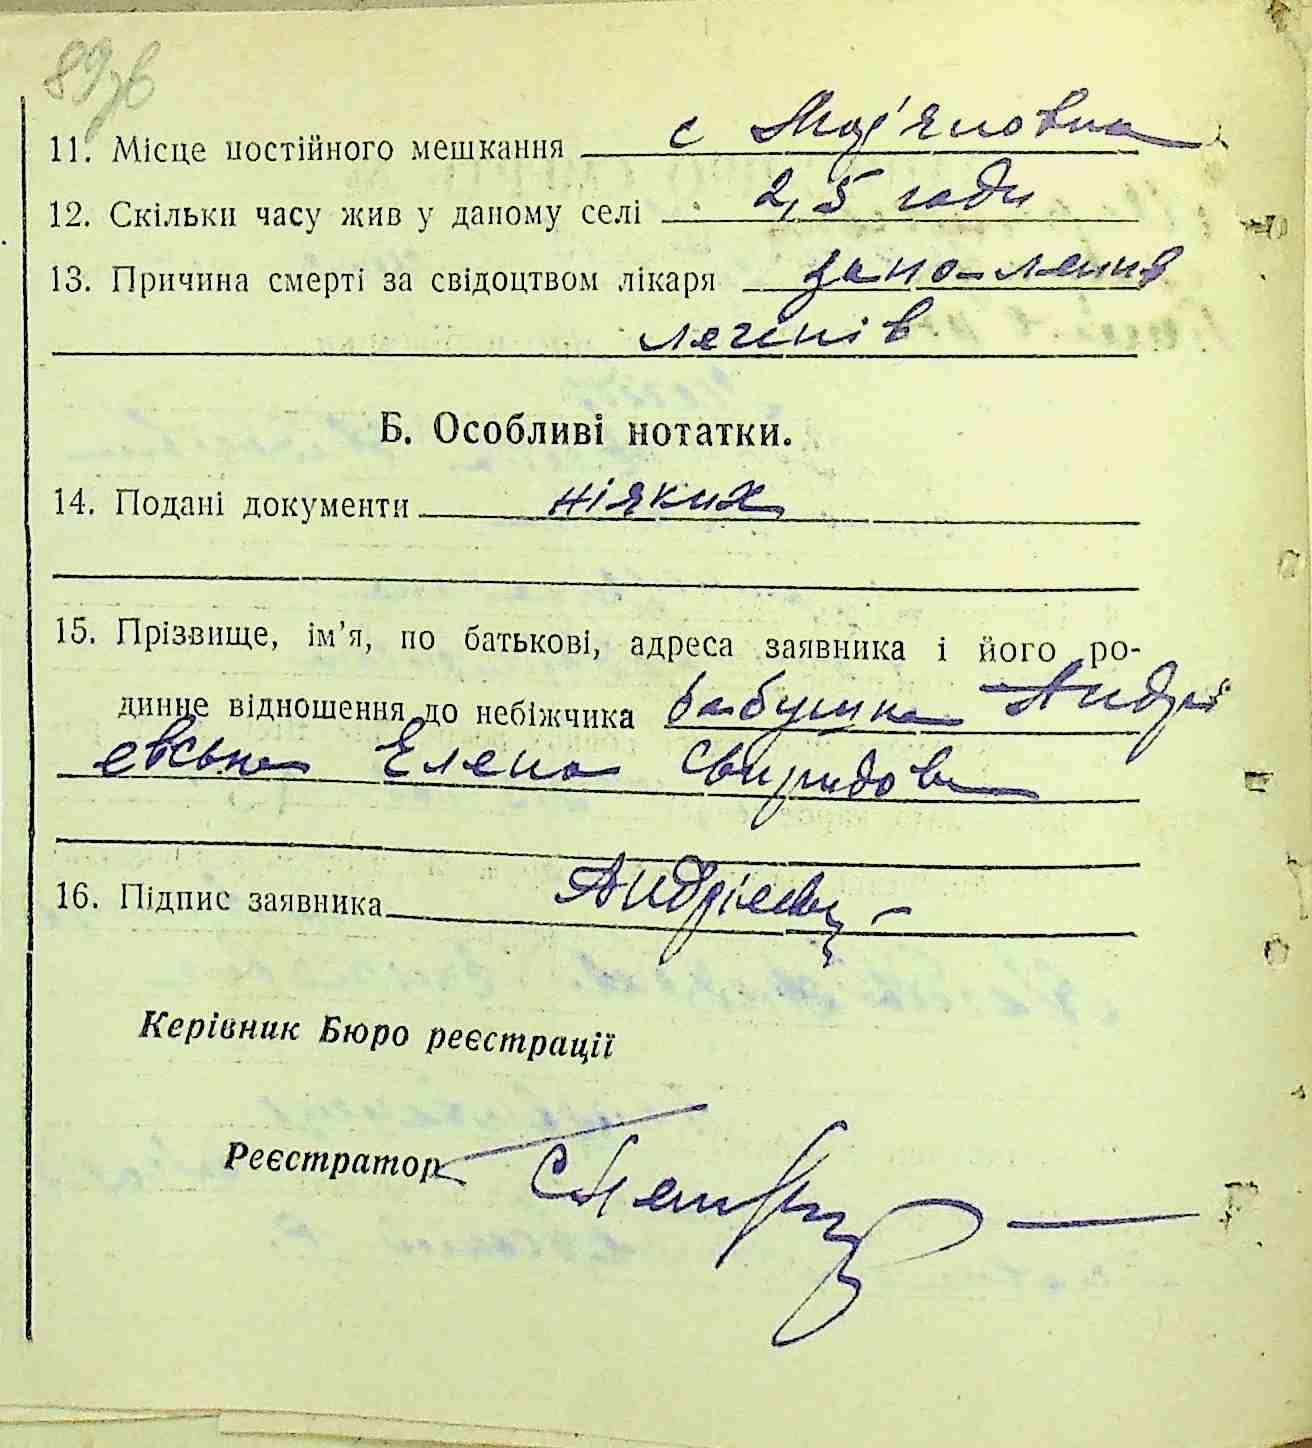 89зв
11. Місце постійного мешкання с Мар'яновка
12. Скільки часу жив у даному селі 2,5 годи
13. Причина смерті за свідоцтвом лікаря запаления
легенів
Б. Особливі нотатки.
14. Подані документи ніяких
15. Прізвище, ім’я, по батькові, адреса заявника і його ро-
динне відношення до небіжчика бабушка Андрі
евська Елена Свиридовна
16. Підпис заявника Андріевс
Керівник Бюро реєстрації
Реєстратор